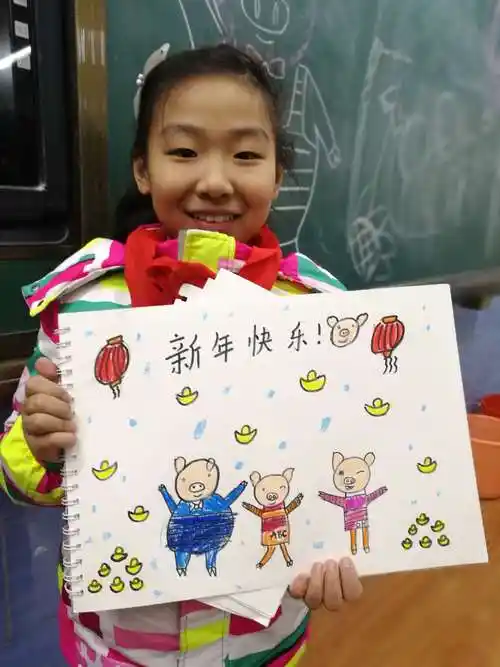 新年快乐!
ABC